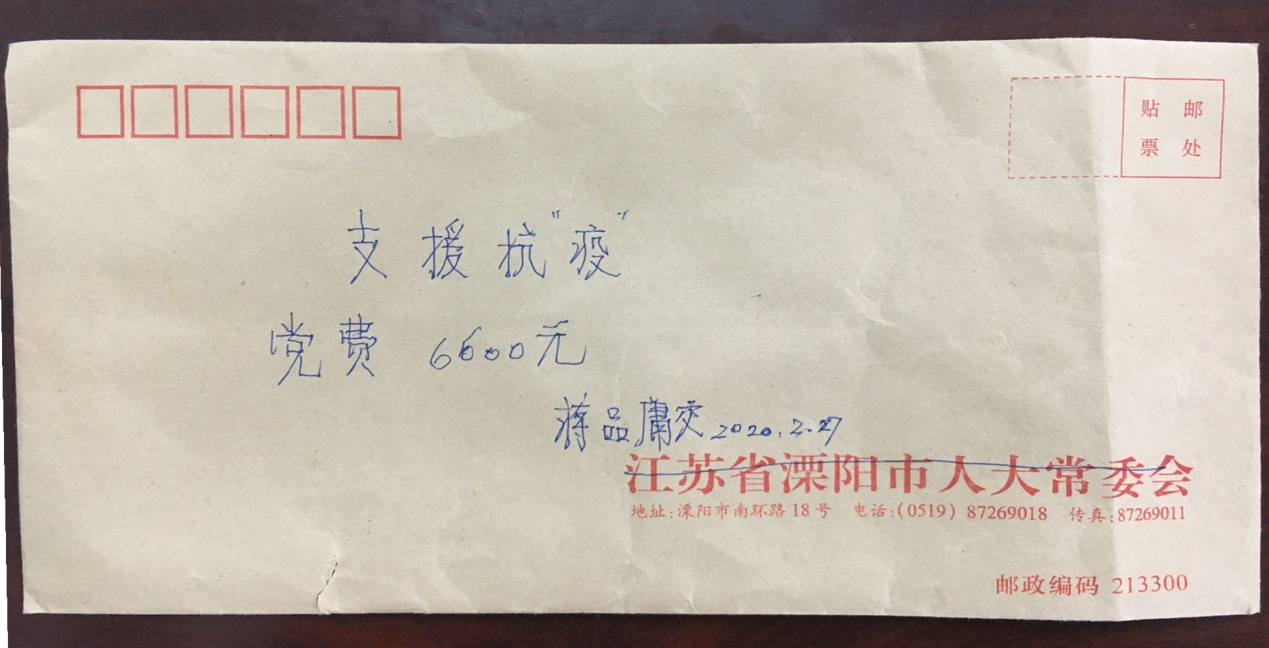 贴 邮
票 处
支援抗"疫"
党费 6600元
蒋品庸交 2020.2.27
江苏省溧阳市人大常委会
地址:溧阳市南环路18号 电话:(0519) 87269018 传真:87269011
邮政编码 213300